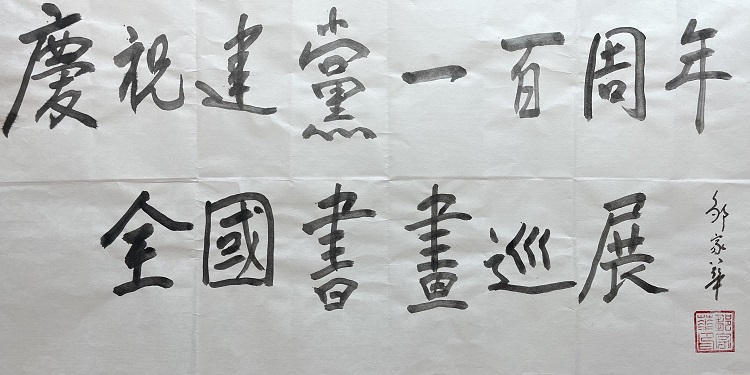 慶祝建黨一百周年
全國書畫巡展
邹家華